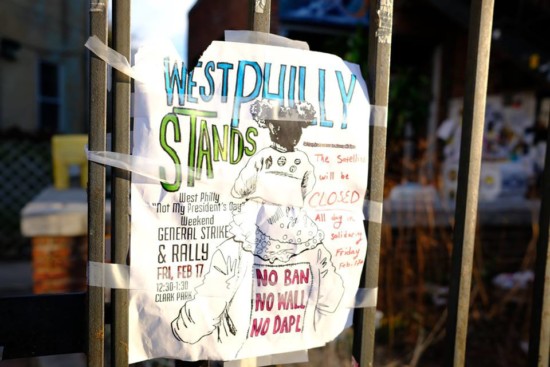 WEST PHILLY
STANDS
West Philly
"Not My President's Day"
Weekend
GENERAL STRIKE
& RALLY
FRI, FEB 17
12:30-1:30
CLARK PARK
NO BAN
NO WALL
NO DAPL
The Satellite
will be
CLOSED
All day in
Solidarity
Friday
Feb.